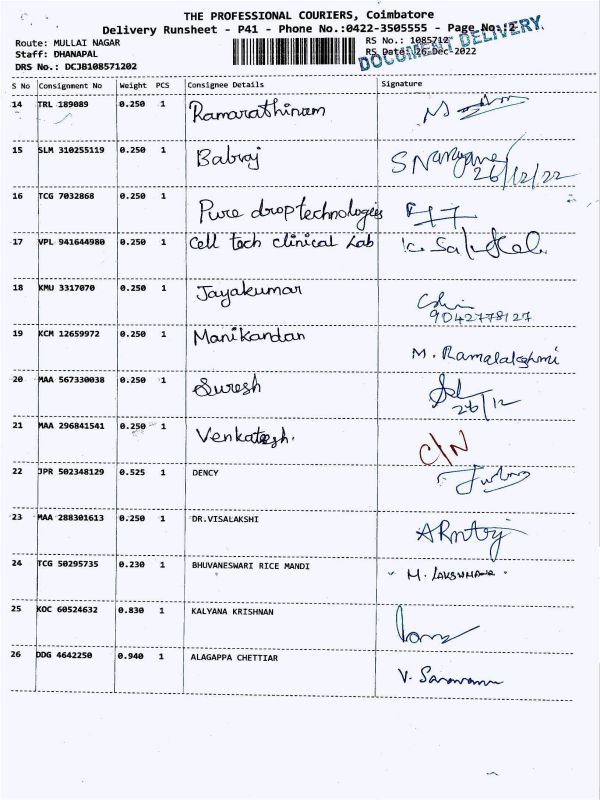 THE PROFESSIONAL COURIERS, Coimbatore
Delivery Runsheet - P41 - Phone No.:0422-3505555 - Page No.:2
Route: MULLAI NAGAR RS No.: 1085712
Staff: DHANAPAL RS Date: 26-Dec-2022
DRS No.: DCJB108571202
DOCUMENT DELIVERY
S No Consignment No Weight PCS Consignee Details Signature
14 TRL 189089 0.250 1 Ramarathinam
15 SLM 310255119 0.250 1 Babraj S Narayanan
26/12/22
16 TCG 7032868 0.250 1 Pure drop technologies
17 VPL 941644980 0.250 1 Cell tech clinical Lab
18 KMU 3317070 0.250 1 Jayakumar
9042778127
19 KCM 12659972 0.250 1 Manikandan
M. Ramalakshmi
20 MAA 567330038 0.250 1 Suresh
26/12
21 MAA 296841541 0.250 1 Venkatesh. C/N
22 JPR 502348129 0.525 1 DENCY
23 MAA 288301613 0.250 1 DR.VISALAKSHI
24 TCG 50295735 0.230 1 BHUVANESWARI RICE MANDI
25 KOC 60524632 0.830 1 KALYANA KRISHNAN
26 DDG 4642250 0.940 1 ALAGAPPA CHETTIAR
V. Saravanan